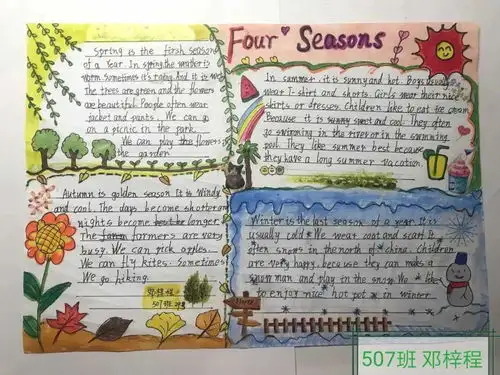 Four Seasons
Spring is the firsh season
of a Year. In spring, the weather is
worm. Sometimes it's rainy. And it is wet
the trees are green and the flowers
are beautiful. People often wear
jacket and pants. We can go
on a picnic in the park.
We can play the flowers in
the garden
In summer, it is sunny and hot. Boys usually
wear T-shirt and shorts. Girls wear their nice
skirts or dresses. Children like to eat ice cream
Because it is sunny sweet and cool. They often
go swimming in the river or in the swimming
pool. They like summer best because
they have a long summer vacation.
Autumn is golden season. It is Windy
and cool. The days become shorter and
nights become longer.
The farmers are very
busy. We can pick apples.
We can fly kites. Sometimes
We go hiking.
邓梓程
507班
Winter is the last season of a year. It is
usually cold. We wear coat and scarf. It
often snows in the north of china. Children
are very happy, because they can make a
snowman and play in the snow. We like
to enjoy nice hot pot in winter
507班 邓梓程